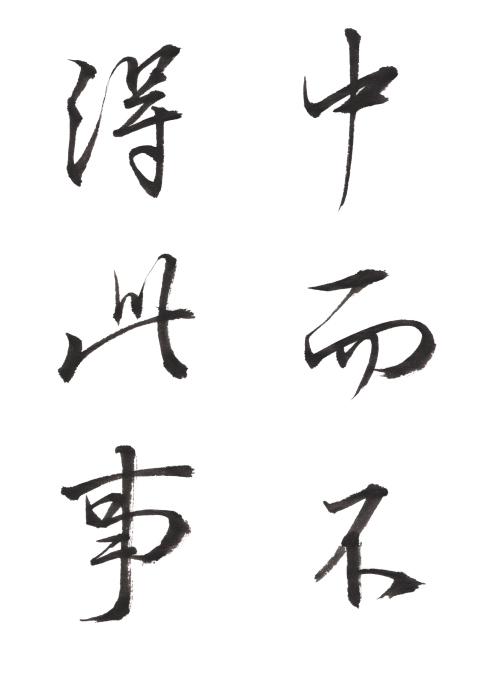 中而不
得此事